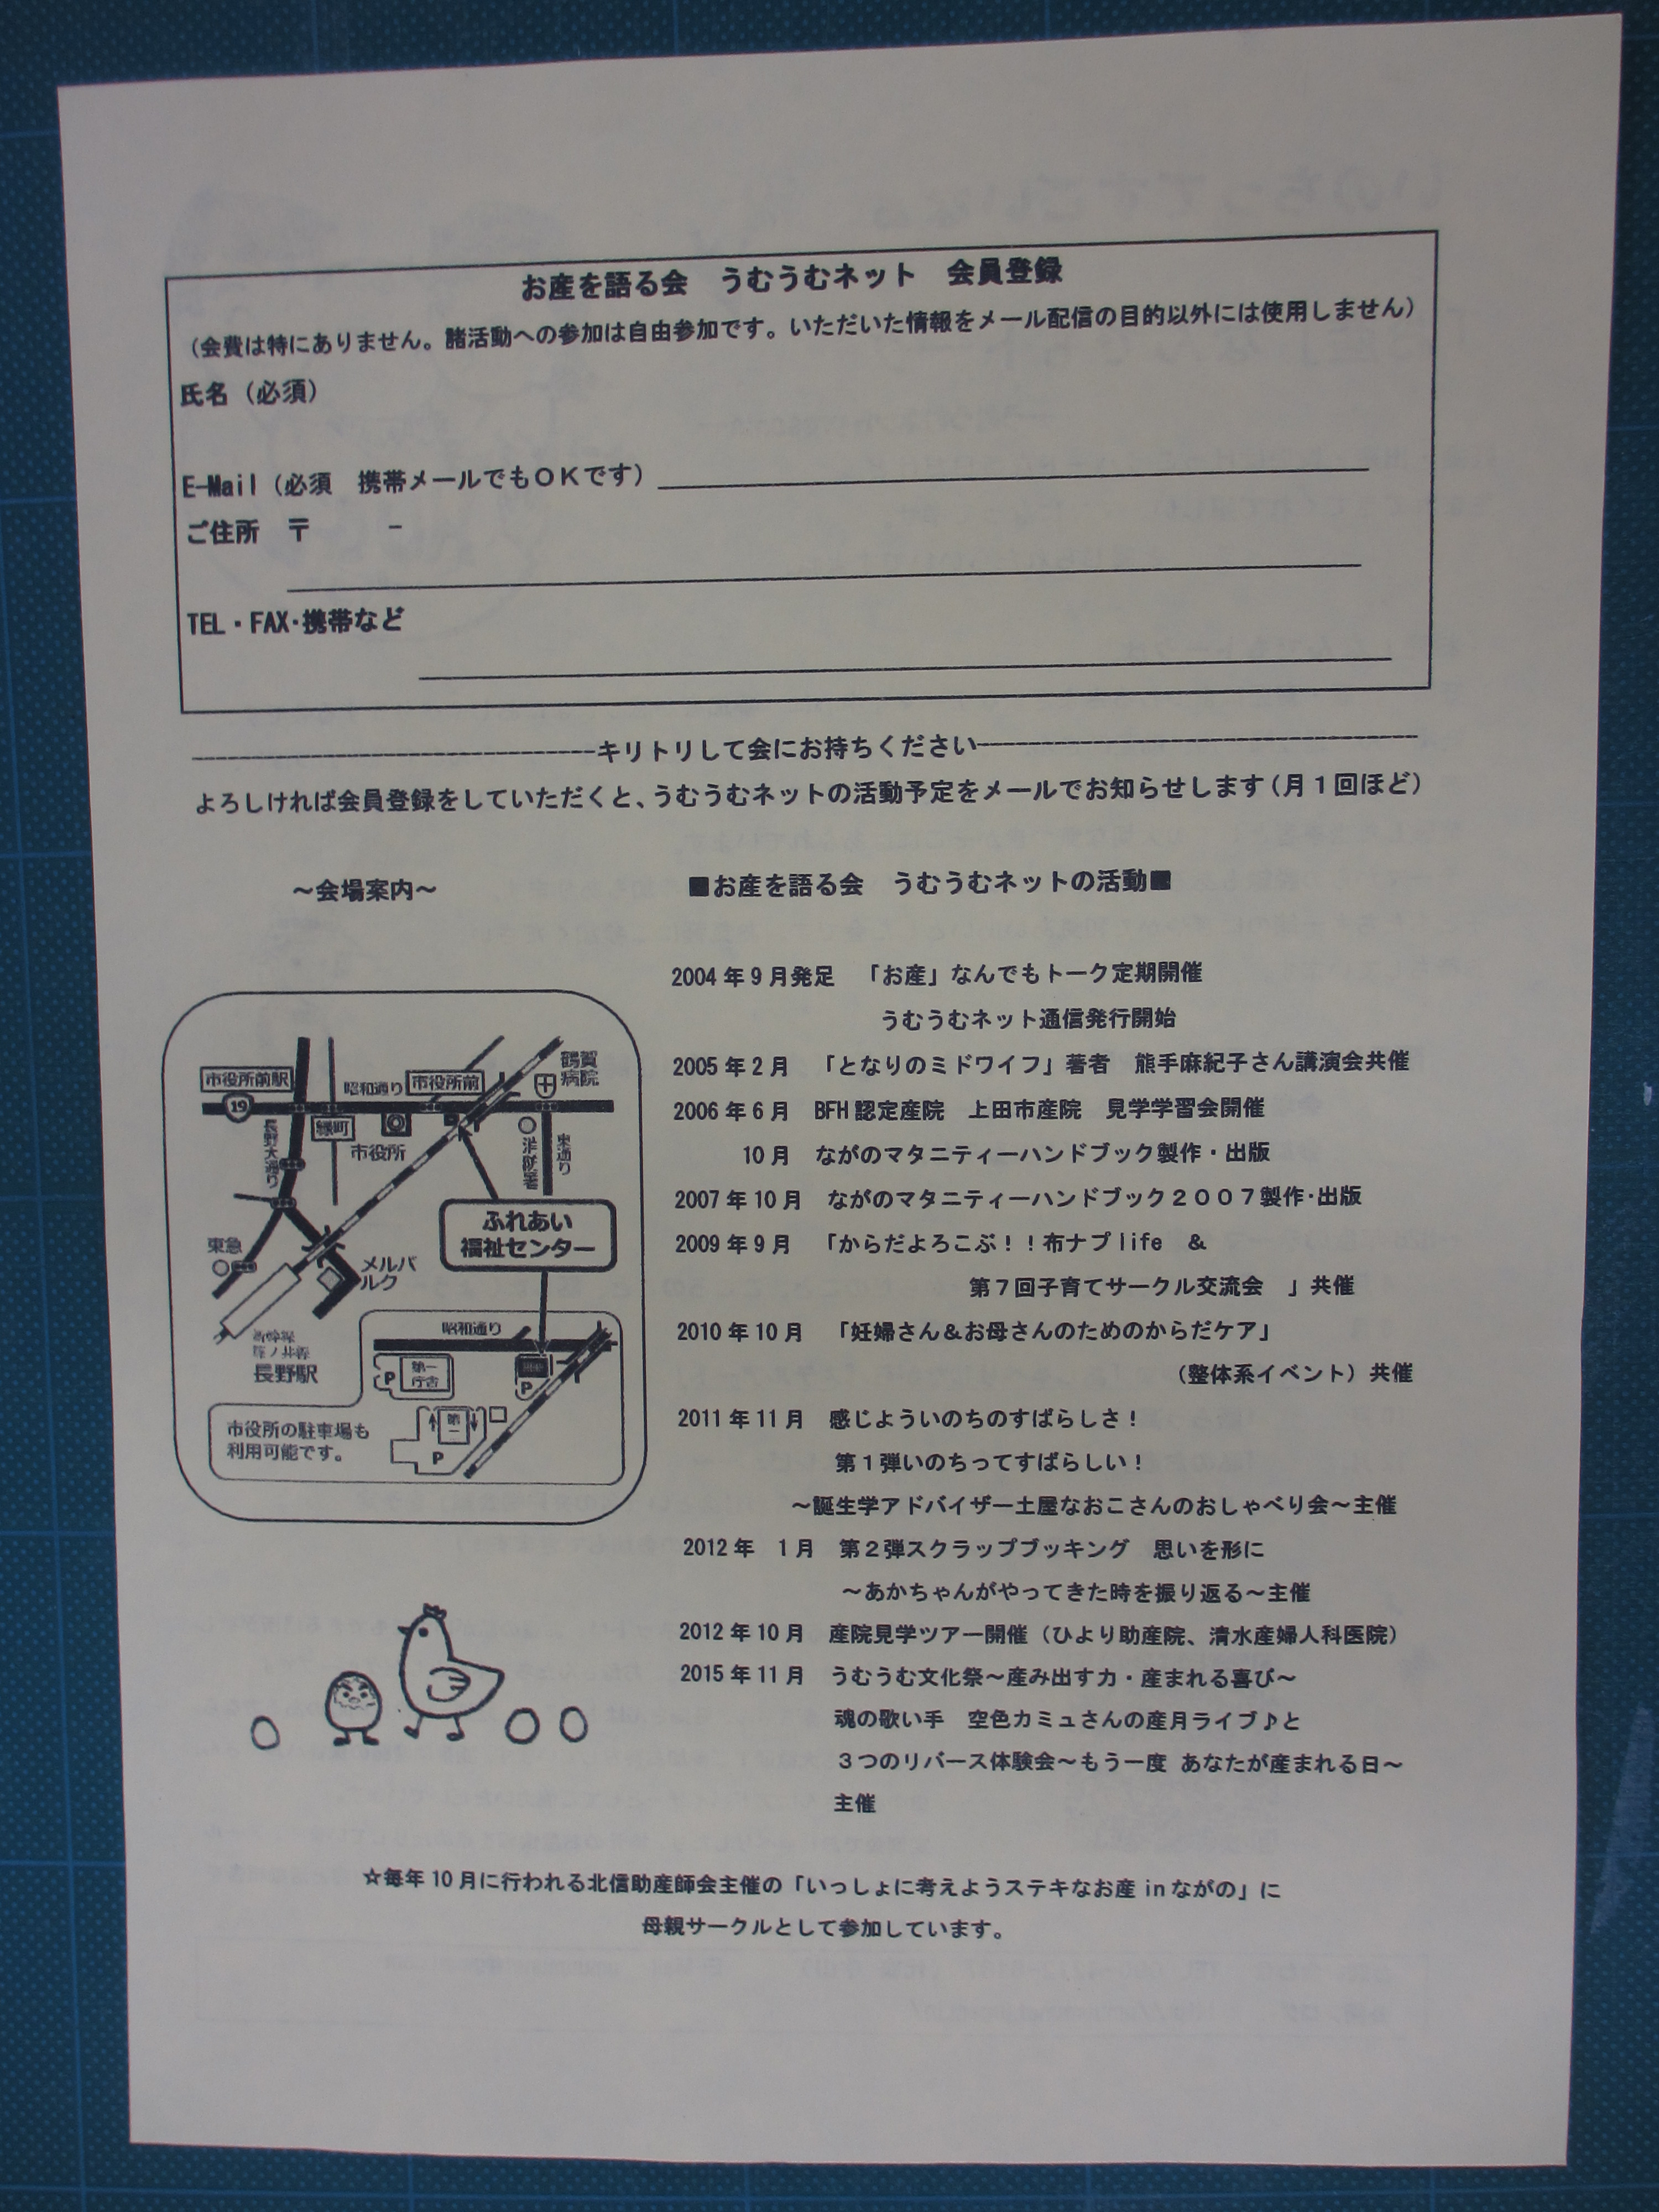 お産を語る会　うむうむネット　会員登録
（会費は特にありません。諸活動への参加は自由参加です。いただいた情報をメール配信の目的以外には使用しません）
氏名（必須）
E-Mail（必須　携帯メールでもＯＫです）
ご住所　〒　　　－
TEL・FAX・携帯など
キリトリして会にお持ちください
よろしければ会員登録をしていただくと、うむうむネットの活動予定をメールでお知らせします（月１回ほど）
～会場案内～
市役所前駅
昭和通り
市役所前
鶴賀
病院
19
緑町
市役所
長野大通り
消防署
東通り
ふれあい
福祉センター
東急
メルパ
ルク
長野駅
昭和通り
P
第一
庁舎
P
第二
P
市役所の駐車場も
利用可能です。
■お産を語る会　うむうむネットの活動■
2004 年 9 月発足　「お産」なんでもトーク定期開催
うむうむネット通信発行開始
2005 年 2 月　「となりのミドワイフ」著者　熊手麻紀子さん講演会共催
2006 年 6 月　BFH 認定産院　上田市産院　見学学習会開催
10 月　ながのマタニティーハンドブック製作・出版
2007 年 10 月　ながのマタニティーハンドブック２００７製作・出版
2009 年 9 月　「からだよろこぶ！！布ナプ life　＆
第７回子育てサークル交流会　」共催
2010 年 10 月　「妊婦さん＆お母さんのためのからだケア」
（整体系イベント）共催
2011 年 11 月　感じよういのちのすばらしさ！
第１弾いのちってすばらしい！
～誕生学アドバイザー土屋なおこさんのおしゃべり会～主催
2012 年　1 月　第２弾スクラップブッキング　思いを形に
～あかちゃんがやってきた時を振り返る～主催
2012 年 10 月　産院見学ツアー開催（ひより助産院、清水産婦人科医院）
2015 年 11 月　うむうむ文化祭～産み出す力・産まれる喜び～
魂の歌い手　空色カミュさんの産月ライブ♪と
３つのリバース体験会～もう一度 あなたが産まれる日～
主催
☆毎年 10 月に行われる北信助産師会主催の「いっしょに考えようステキなお産 in ながの」に
母親サークルとして参加しています。